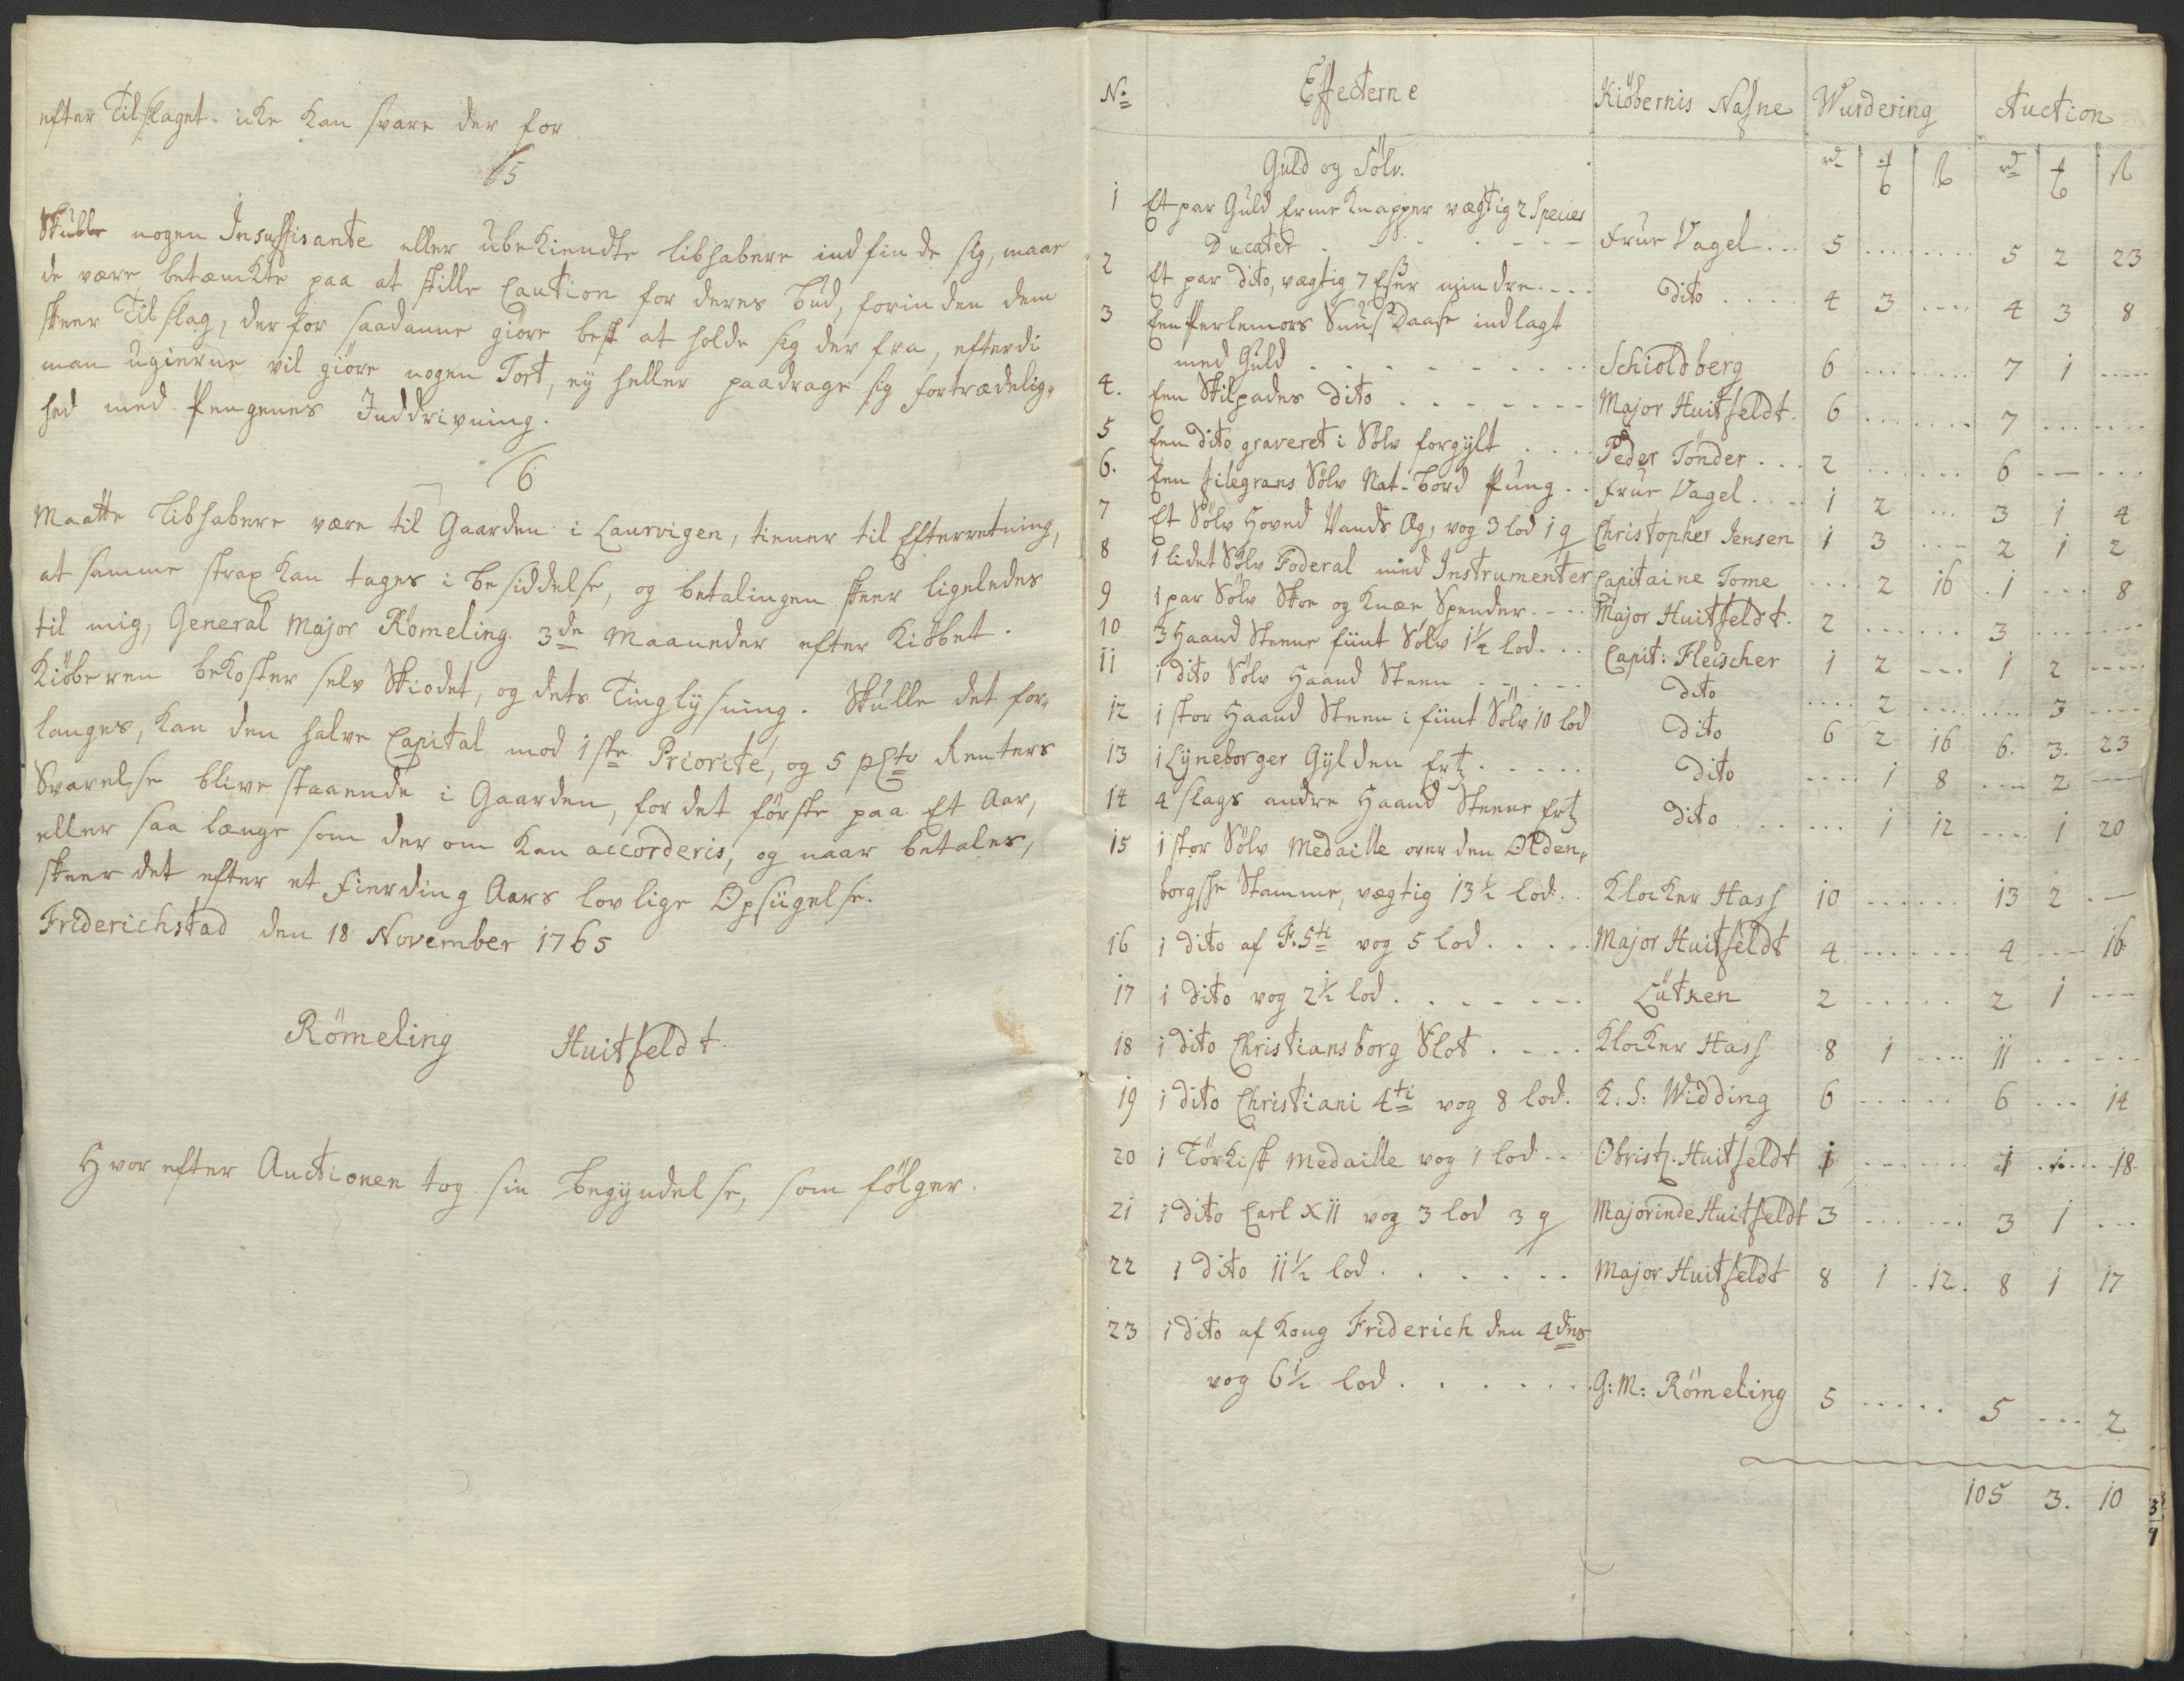 efter Tilslaget icke kan svare der for
/5
Skulle nogen Insuffisante eller ubekiendte libhabere indfinde sig, maae
de være betænckte paa at stille Caution for deres bud, forinden dem
skeer Tilslag, derfor saadanne giöre best at holde sig der fra, efterdi
man ugierne vil giöre nogen Tort, ey heller paadrage sig fortrædelig-
hed med Pengenes Inddrivning.
/6
Maatte libhabere være til Gaarden i Laurvigen, tiener til Efterretning,
at samme strax kan tages i besiddelse, og betalingen skeer ligeledes
til mig, General Major Römeling 3de Maaneder efter Kiöbet.
Kiöberen bekoster selv Skiödet, og dets Tinglysning. Skulle det for-
langes, kan den halve Capital mod 1ste Priorité, og 5 pCto Renters
Svarelse blive staaende i Gaarden, for det förste paa Et Aar,
eller saa længe som der om kan accorderis, og naar betales,
skeer det efter et Fierding Aars lovlige Opsiigelse.
Friderichstad den 18 November 1765
Römeling Huitfeldt.
Hvorefter Auctionen tog sin begyndelse, som fölger.
No Effecterne Kiöbernis Nafne Wurdering Auction
Guld og Sölv. rd ß rd ß
1 Et par Guld Erme Knapper vægtig 2 Species
Ducater . . . Frue Vagel . . . 5 . . . 5 2 23
2 Et par dito, vægtig 7 Eser mindre . . . dito . . . 4 3 . . . 4 3 8
3 Een Perlemors Snuus Daase indlagt
med Guld . . . Schioldberg 6 . . . 7 1 . . .
4. Een Skilpades dito . . . Major Huitfeldt. 6 . . . 7 . . .
5 Een dito graveret i Sölv forgylt . . . Peder Tönder . . . 2 . . . 6 . . .
6. Een filegrans Sölv Nat-bord Pung . . Frue Vagel . . . 1 2 . . . 3 1 4
7 Et Sölv Hoved Vands Æg, vog 3 lod 1 q Christopher Jensen 1 3 . . . 2 1 2
8 1 lidet Sölv Foderal med Instrumenter Capitaine Tome . . . 2 16 1 . . . 8
9 1 par Sölv Skoe og Knæe Spender . . . Major Huitfeldt. 2 . . . 3 . . .
10 3 Haand Steene fiint Sölv 1½ lod . . . Capit: Fleischer 1 2 . . . 1 2 . . .
11 1 dito Sölv Haand Steen . . . dito . . . 2 . . . 3 . . .
12 1 stor Haand Steen i fiint Sölv 10 lod dito 6 2 16 6. 3. 23
13 1 Lyneborger Gylden Ertz . . . dito . . . 1 8 . . . 2 . . .
14 4 slags andre Haand Steene Ertz dito . . . 1 12 . . . 1 20
15 1 stor Sölv Medaille over den Olden-
borgske Stamme, vægtig 13½ lod . . Klocker Hass 10 . . . 13 2 . . .
16 1 dito af F. 5ti vog 5 lod . . . Major Huitfeldt 4 . . . 4 . . . 16
17 1 dito vog 2½ lod . . . Lütken 2 . . . 2 1 . . .
18 1 dito Christiansborg Slot . . . Klocker Hass 8 1 . . . 11 . . .
19 1 dito Christiani 4ti vog 8 lod. K. S: Widding 6 . . . 6 . . . 14
20 1 Törkisk Medaille vog 1 lod . . Obristl. Huitfeldt 1 . . . 1 . . . 18
21 1 dito Carl XII vog 3 lod 3 q Majorinde Huitfeldt 3 . . . 3 1 . . .
22 1 dito 11½ lod . . . Major Huitfeldt 8 1 12. 8 1 17
23 1 dito af Kong Friderich den 4des
vog 6½ lod . . . G: M: Römeling 5 . . . 5 . . . 2
105 3. 10